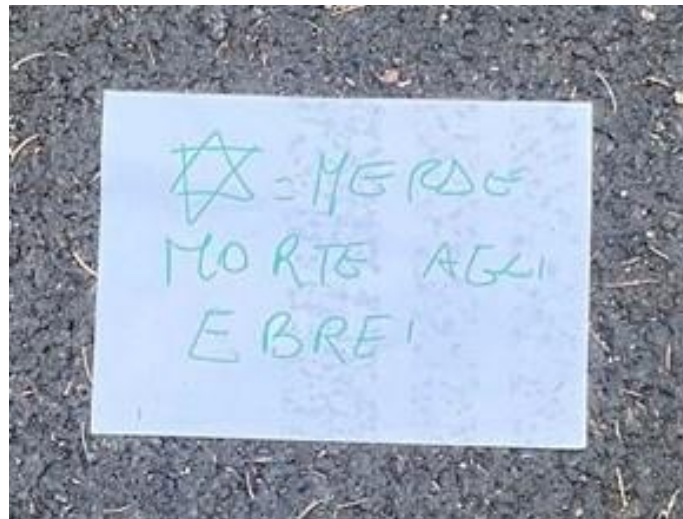 ✡ = MERDE
MORTE AGLI
EBREI